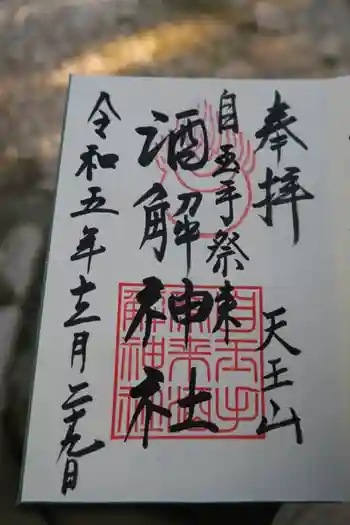 奉拝
天王山
自玉手祭来
酒解神社
令和五年十二月二十九日